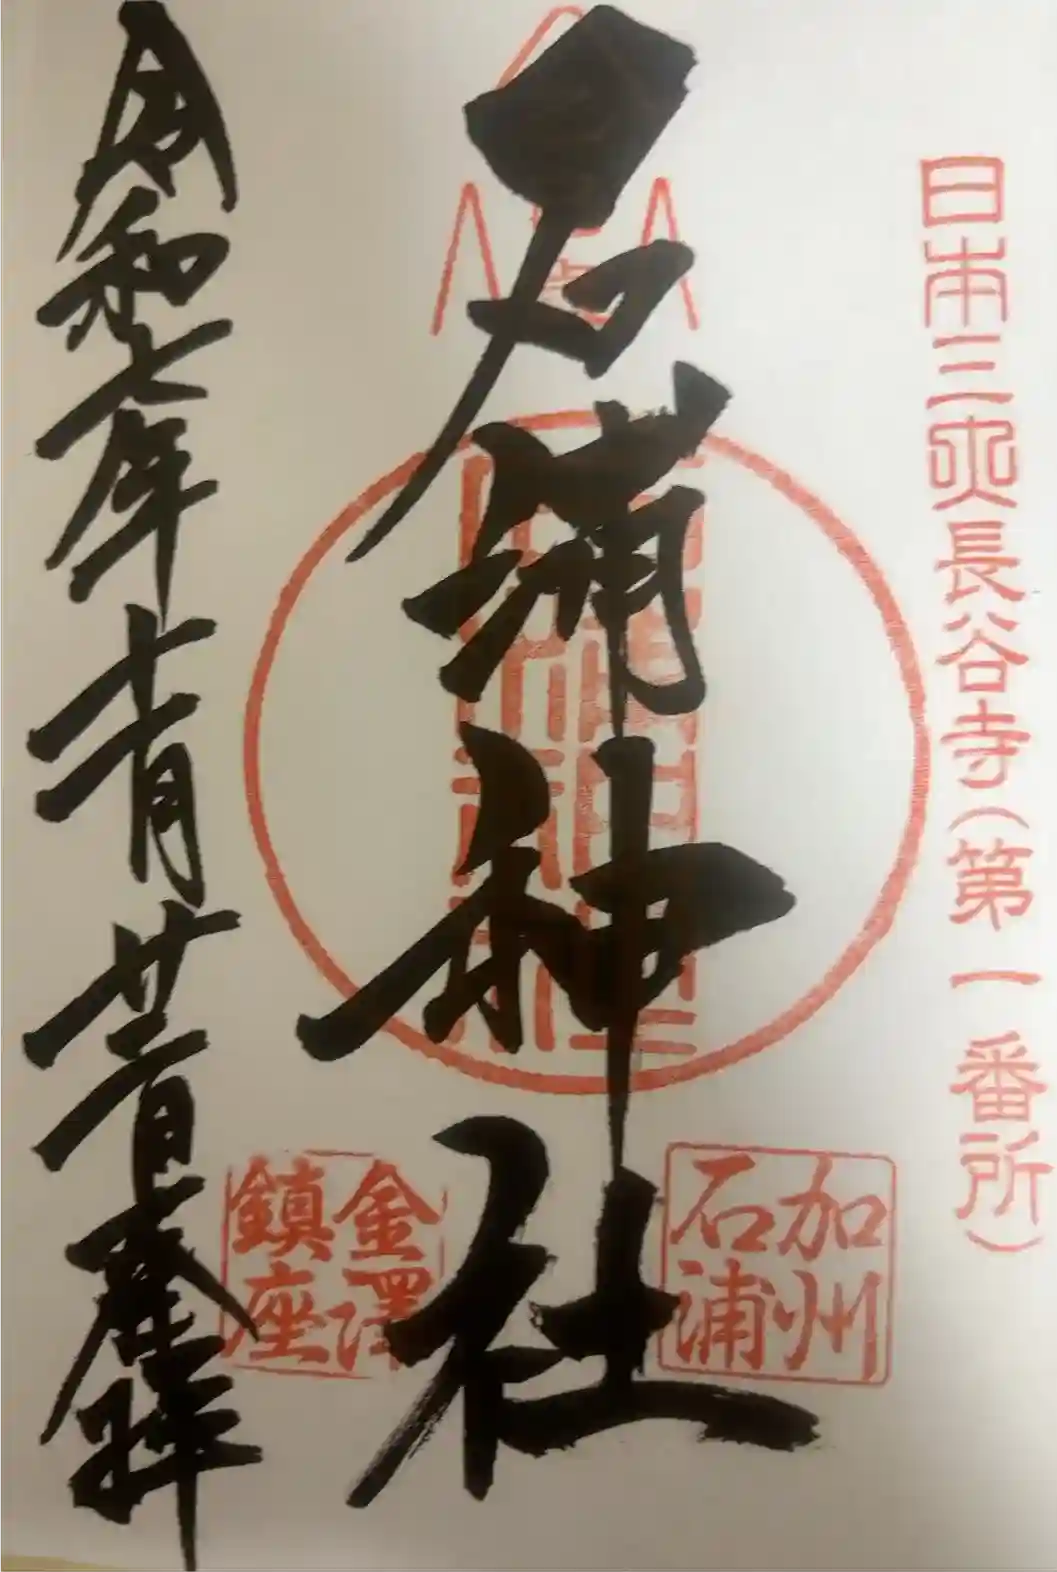 日本三大長谷寺(第一番所)
石浦神社
加州
石浦
金澤
鎮座
令和七年十一月廿一日奉拝